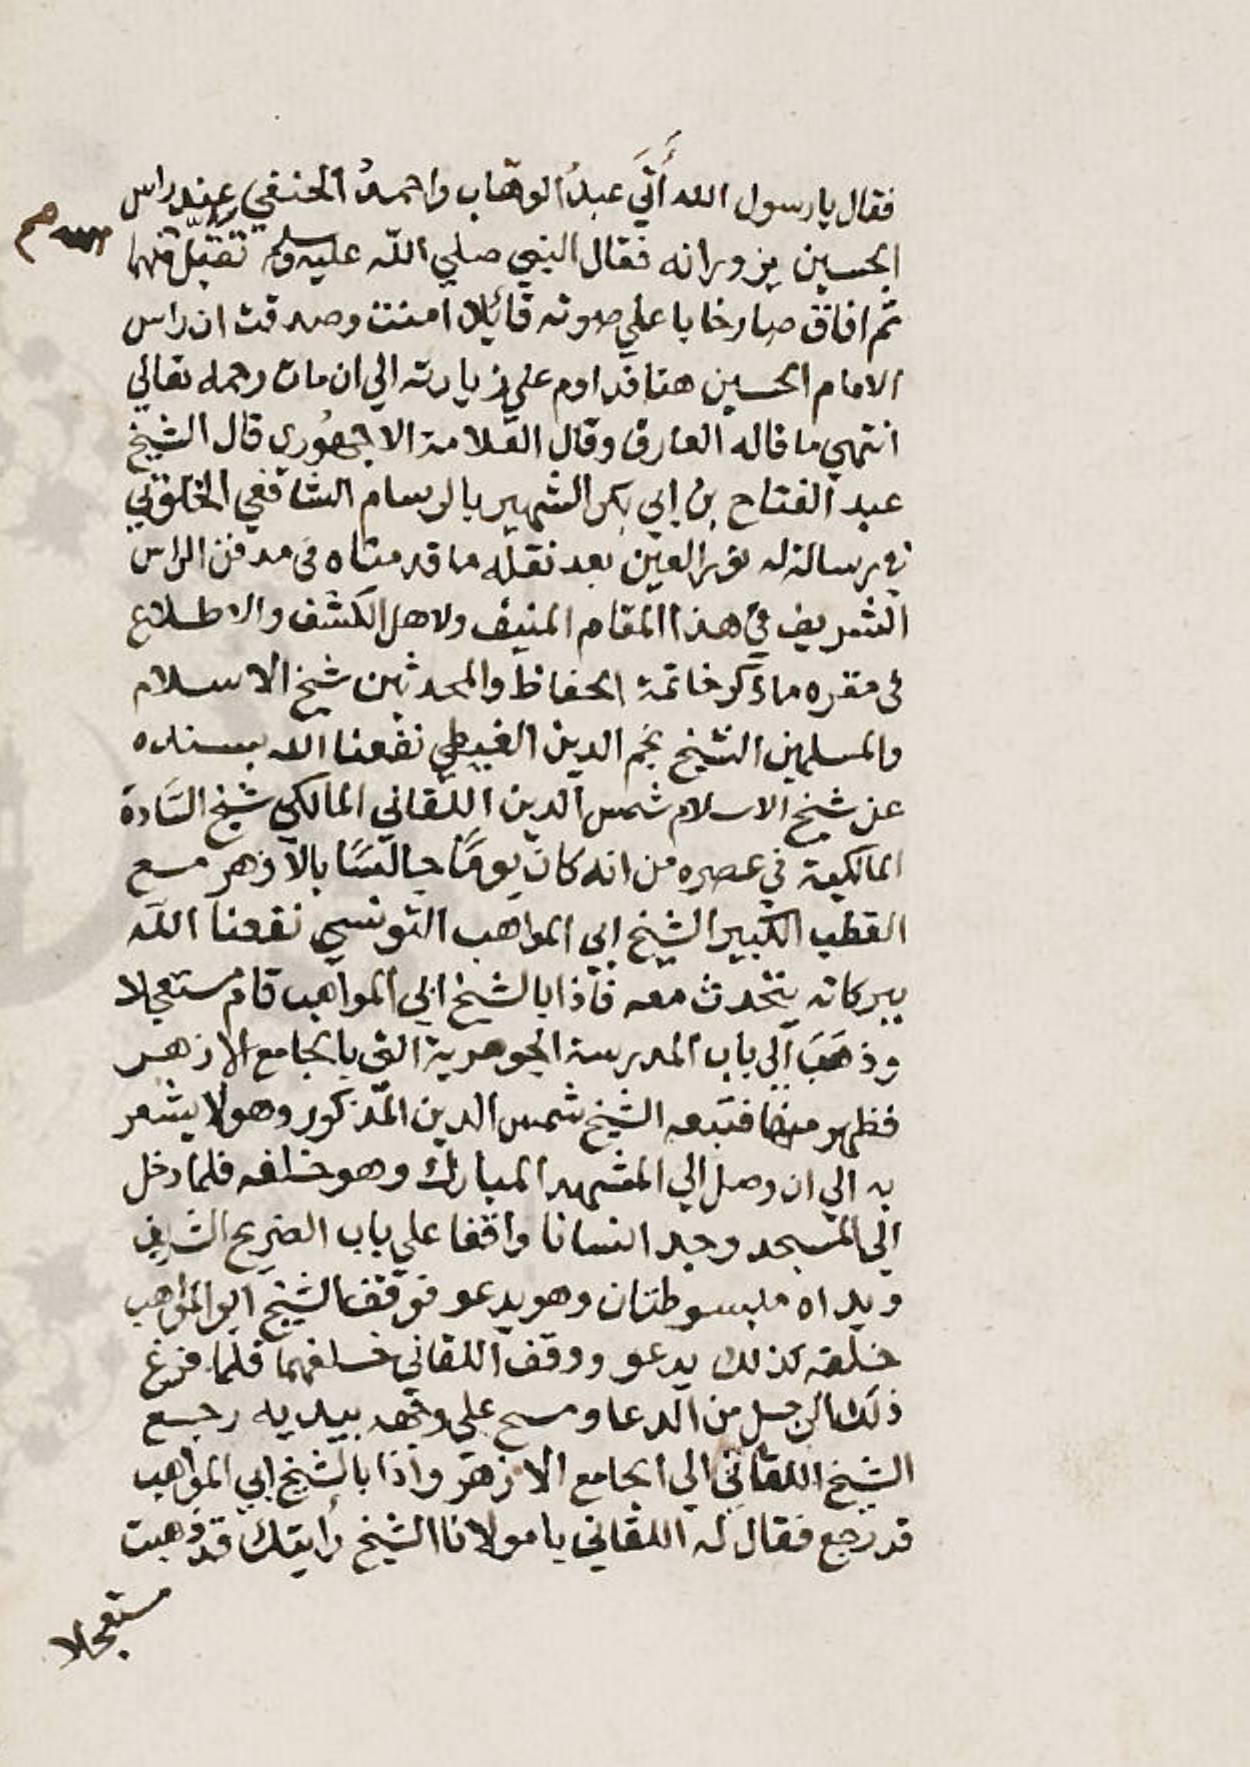 فقال يا رسول الله أتى عبدُ الوهاب واحمدُ الحنفي عند راس
الحسين يزورانه فقال النبي صلي الله عليه وسلم تقبل منهما
ثم افاق صارخا باعلي صوته قائلا امنت وصدقت ان راس
الامام الحسين هنا فداوم علي زيارته الي ان مات رحمه تعالي
انتهي ما قاله العارف وقال العلامة الاجهوري قال الشيخ
عبد الفتاح بن ابي بكر الشهير بالرسام الشافعي الخلوتي
في رسالة له نور العين بعد نقله ما قدمناه في مدفن الراس
الشريف في هذا المقام المنيف ولاهل الكشف والاطلاع
في مقره ما ذكر خاتمة الحفاظ والمحدثين شيخ الاسلام
والمسلمين الشيخ نجم الدين الغيطي نفعنا الله بسنده
عن شيخ الاسلام شمس الدين اللقاني المالكي شيخ السَّادة
المالكية في عصره من انه كان يومًا جالسًا بالازهر مع
القطب الكبير الشيخ ابي المواهب التونسي نفعنا الله
ببركاته يتحدث معه فاذا بالشيخ ابي المواهب قام مستعجلا
وذهَبَ الى باب المدرسة الجوهرية التي بالجامع الازهر
فظهر منها فتبعه الشيخ شمس الدين المذكور وهو لا يشعر
به الي ان وصل الي المشهد المبارك وهو خلفه فلما دخل
الي المسجد وجد انسانا واقفا علي باب الضريح الشريف
ويداه مبسوطتان وهو يدعو فوقف الشيخ ابو المواهب
خلفه كذلك يدعو ووقف اللقاني خلفهما فلما فرغ
ذلك الرجل من الدعا ومسح علي وجهه بيديه رجع
الشيخ اللقاني الي الجامع الازهر واذا بالشيخ ابي المواهب
قد رجع فقال له اللقاني يا مولانا الشيخ رأيتك قد ذهبت
مستعجلا